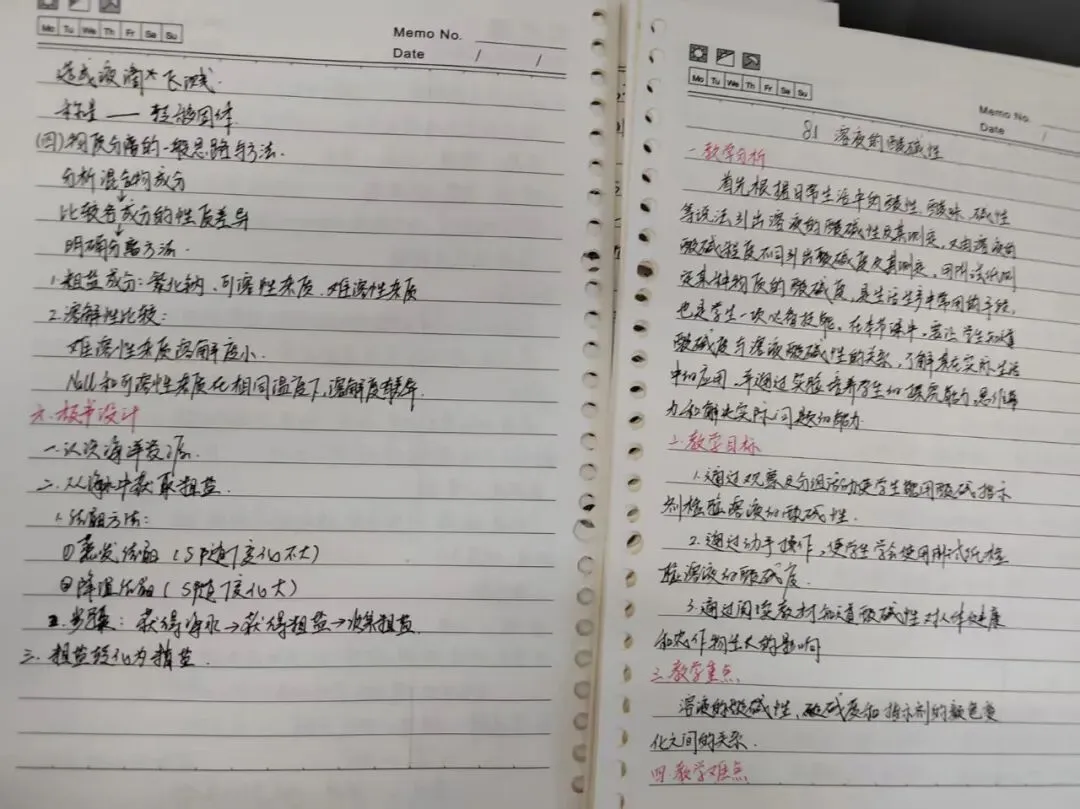 Mo Tu We Th Fr Sa Su
Memo No.
Date / /
造成液滴飞溅.
称量——转移固体
(四)物质分离的一般思路与方法.
分析混合物成分
↓
比较各成分的性质差异
↓
明确分离方法.
1.粗盐成分:氯化钠、可溶性杂质、难溶性杂质
2.溶解性比较:
难溶性杂质溶解度小.
NaCl和可溶性杂质在相同温度下,溶解度有差异
六.板书设计
一.认识海洋资源.
二.从海水中获取粗盐.
1.结晶方法:
①蒸发结晶(S随T变化不大)
②降温结晶(S随T变化大)
2.步骤:获得海水→获得粗盐→收集粗盐
三.粗盐转化为精盐.
Mo Tu We Th Fr Sa Su
Memo No.
Date /
8.1 溶液的酸碱性
一.教学分析
首先根据日常生活中的酸性、酸味、碱性
等说法引出溶液的酸碱性及其测定,又由溶液的
酸碱程度不同引出酸碱度及其测定,用pH试纸测
定某种物质的酸碱度,是生活生产中常用的手段,
也是学生一项必备技能。在本节课中,要让学生知道
酸碱度与溶液酸碱性的关系,了解其在实际生活
中的应用,并通过实验培养学生的探究能力、思维能
力和解决实际问题的能力.
二.教学目标
1.通过观察及分组活动使学生能用酸碱指示
剂检验溶液的酸碱性.
2.通过动手操作,使学生学会使用pH试纸检
验溶液的酸碱度.
3.通过阅读教材知道酸碱性对人体健康
和农作物生长的影响
三.教学重点
溶液的酸碱性、酸碱度和指示剂的颜色变
化之间的关系.
四.教学难点